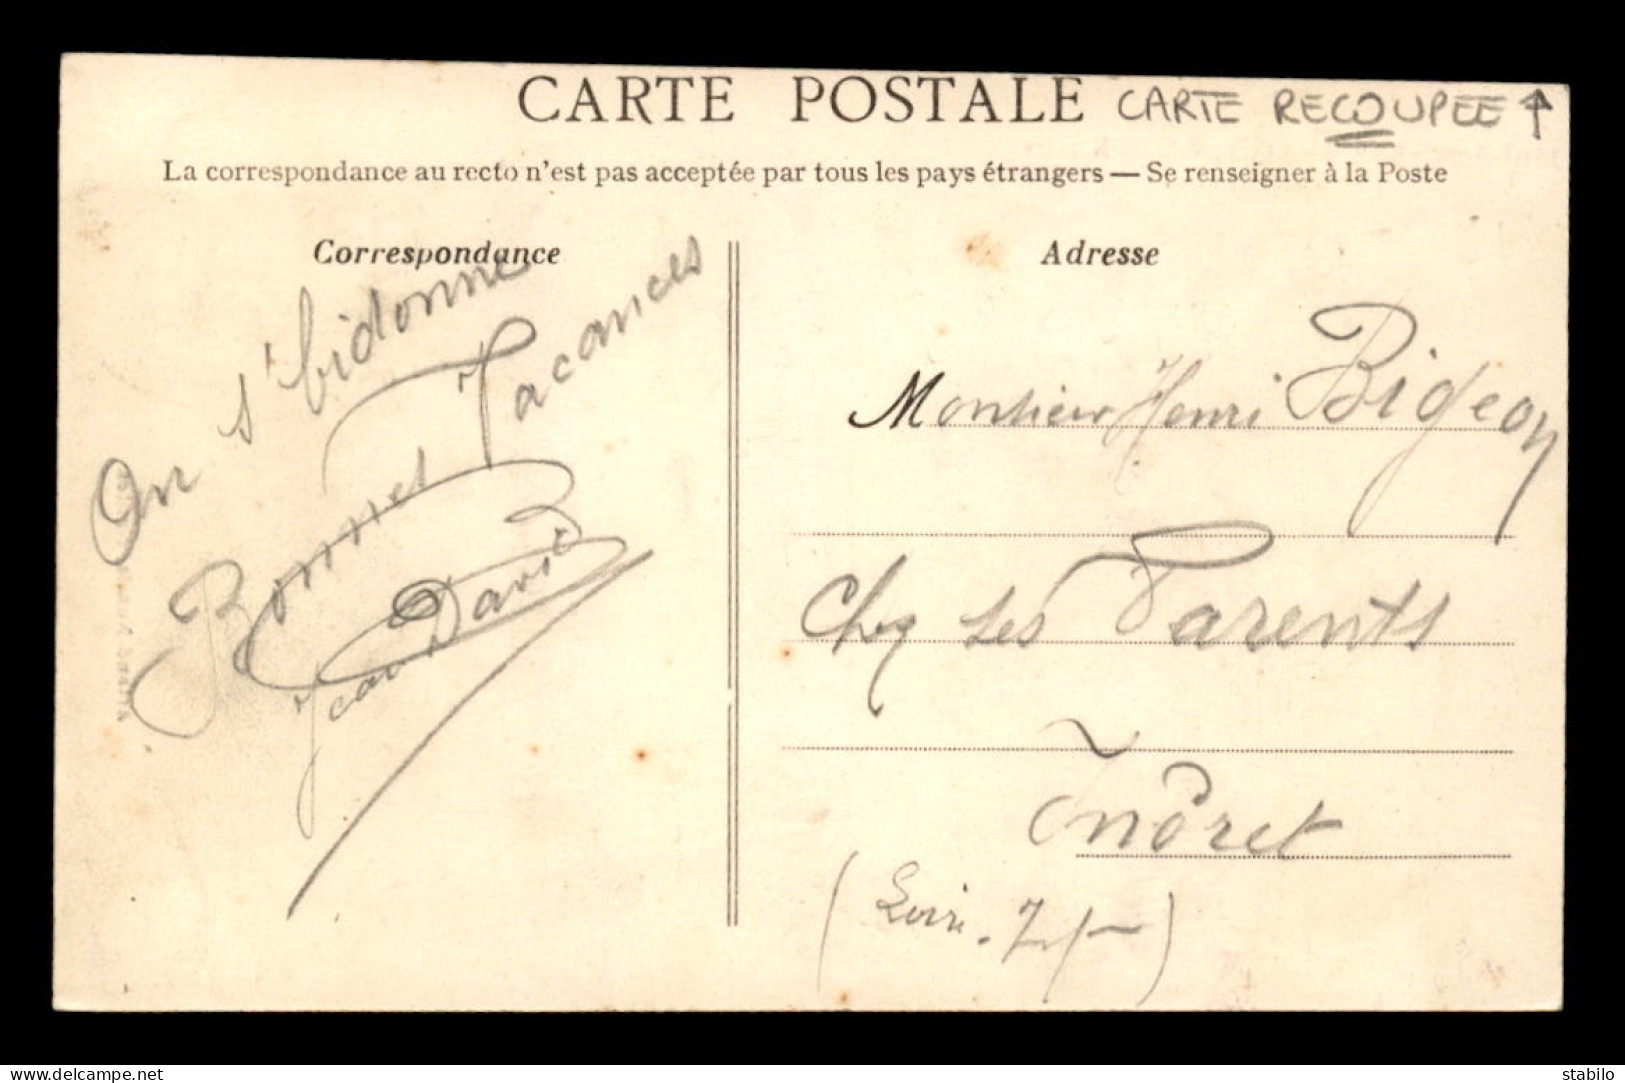 CARTE POSTALE CARTE RECOUPEE ↑
La correspondance au recto n'est pas acceptée par tous les pays étrangers — Se renseigner à la Poste
Correspondance
On s'bidonne
Bonnes Vacances
Jean David
Adresse
Monsieur Henri Bigeon
Chez ses Parents
Indret
(Loire - Infre)
www.delcampe.net
stabilo